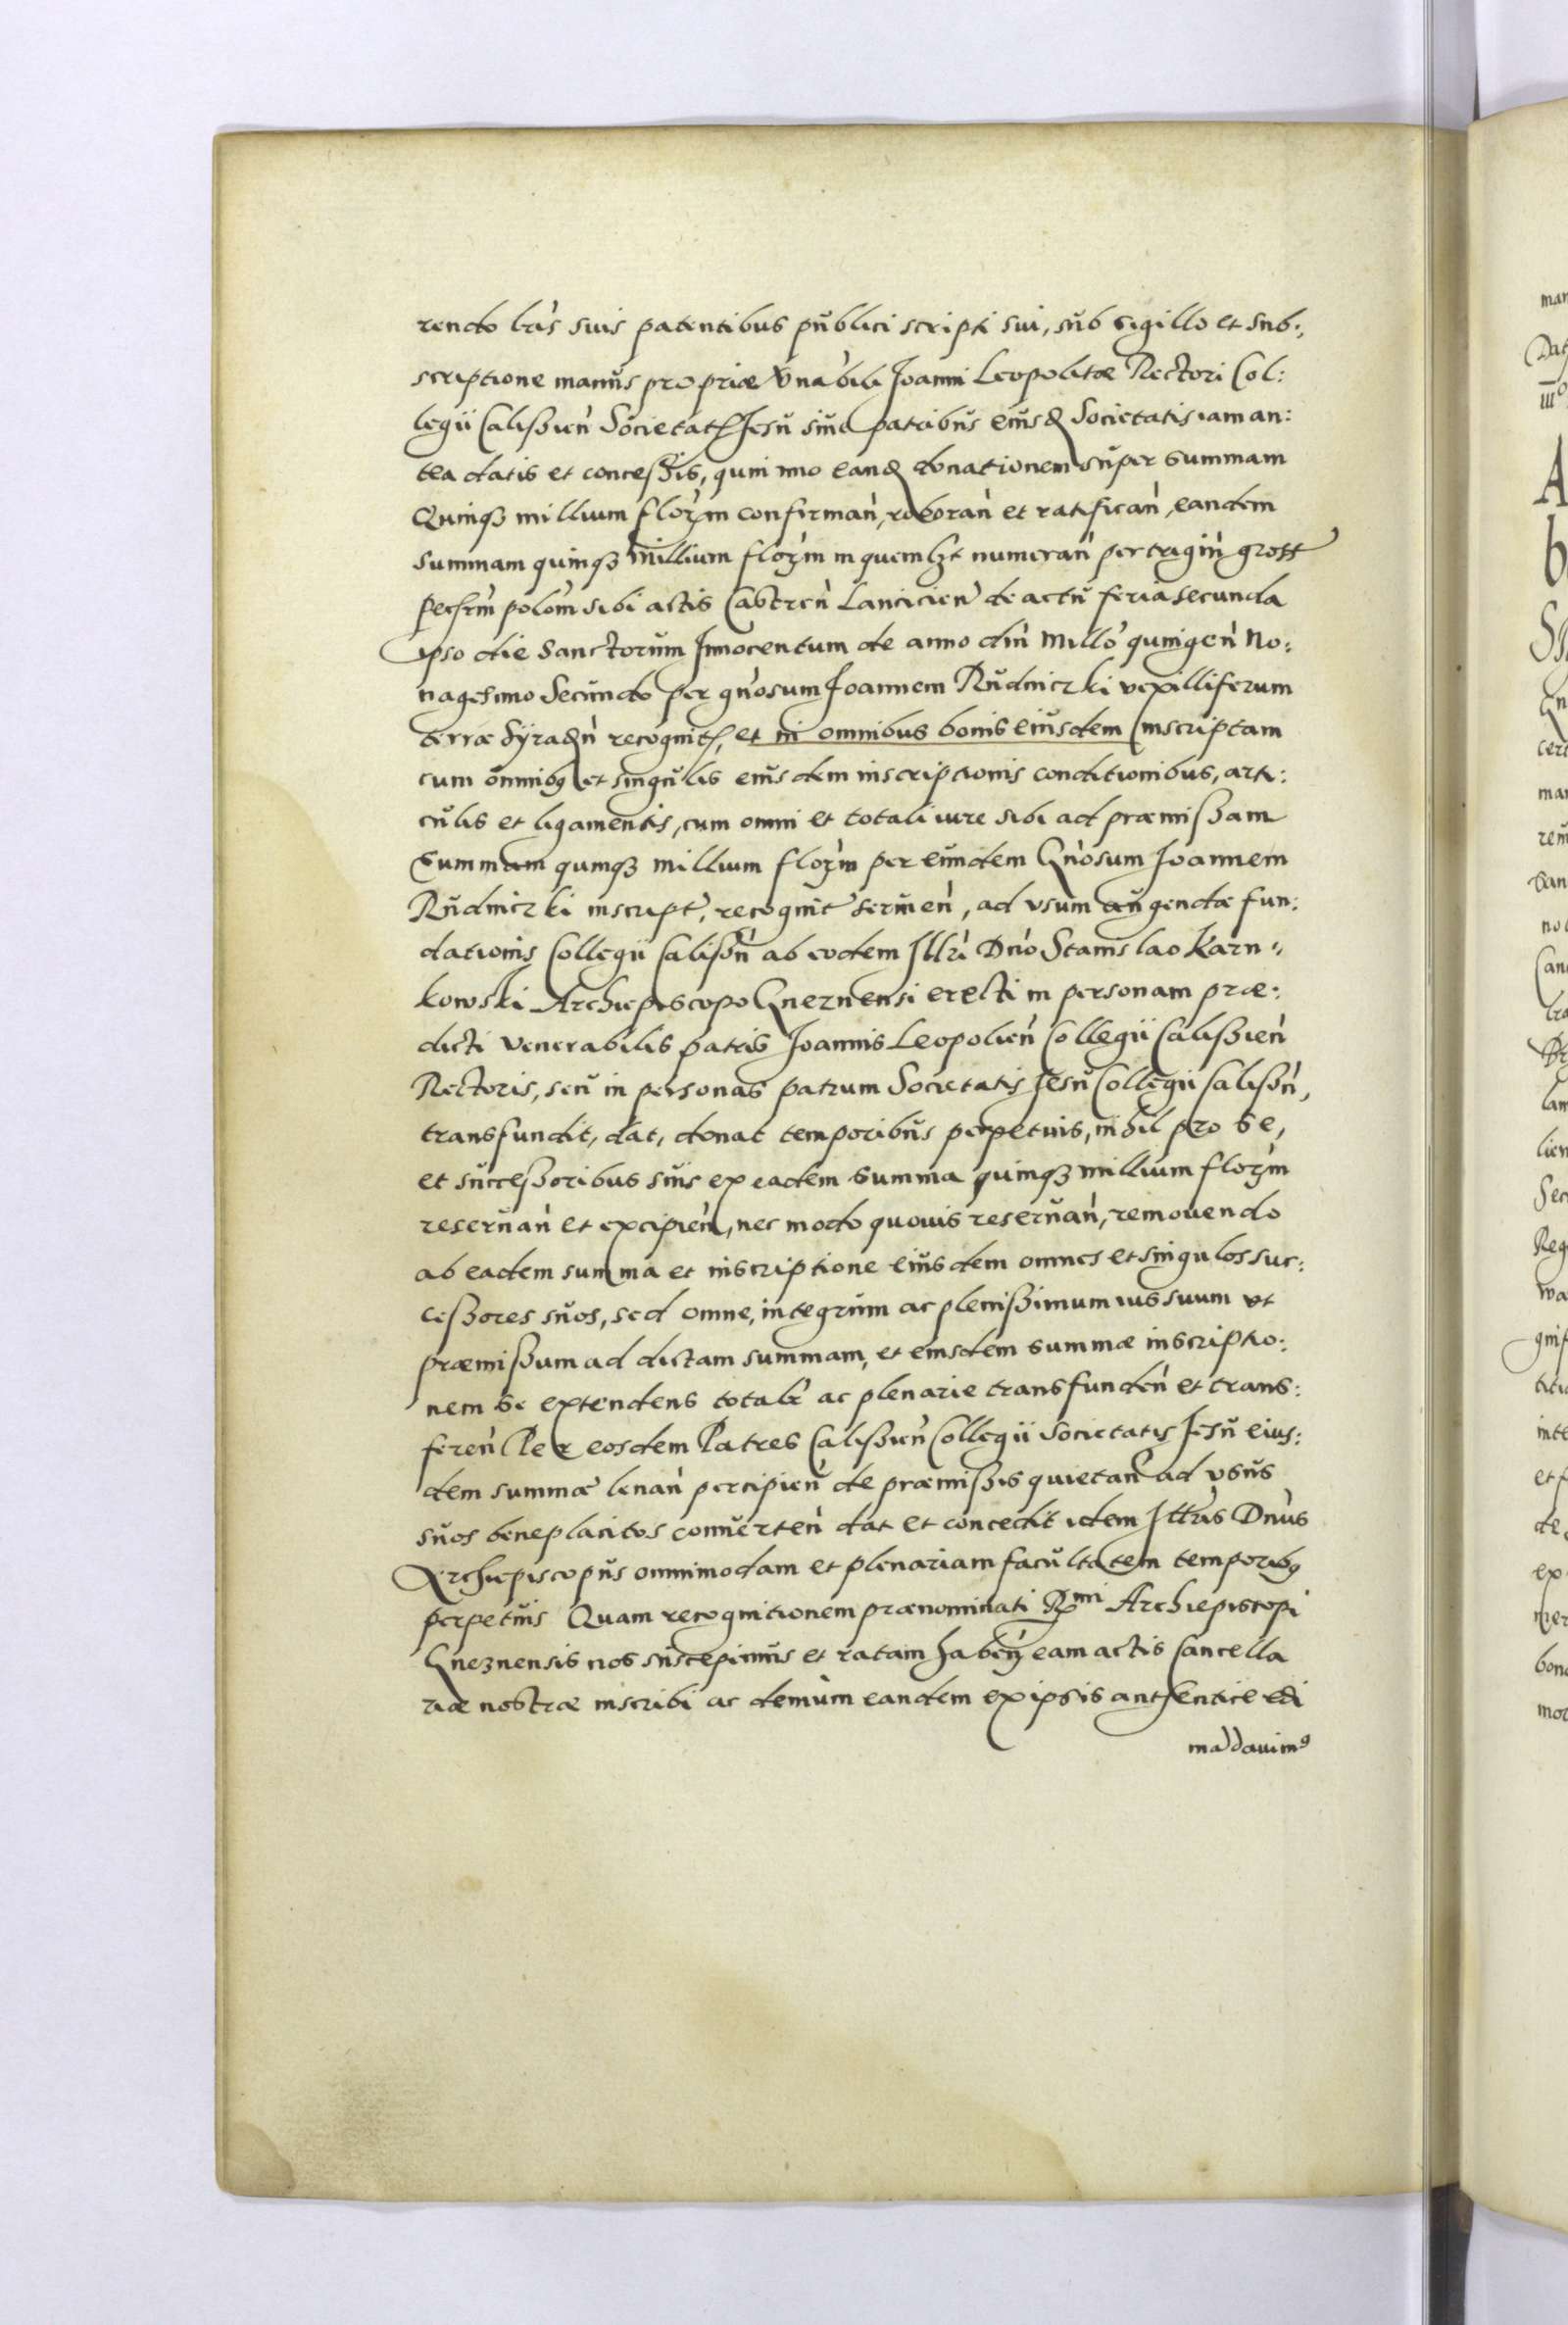 rendo lrãs suis patentibus publici scripti sui, sub sigillo et sub:
scriptione manus propriæ Vnàbili Joanni Leopolitæ Rectori Col:
legii Calissien̄ Societatꝭ Jesu siue patribus eiusꝺ Societatis iam an:
tea datis et concessis, quin imo eanꝺ donationem super summam
Quinqꝫ millium florꝫm confirman̄, roboran̄ et ratifican̄, eandem
summam quinqꝫ millium florꝫm in quemlꝫt numeran̄ per trigin̄ gross
pecsm̄ polōm sibi actis Castren̄ Lancicien̄ de actu feria secunda
ipso die Sanctorum Innocentum de anno din̄ Millō quingen̄ No:
nagesimo Secundo per gn̄osum Joannem Rudniczki vexilliferum
terræ Syradn̄ recognitꝭ, et in omnibus bonis eiusdem inscriptam
cum omnibꝫ et singulis eiusdem inscriptionis conditionibus, arti:
culis et ligamentis, cum omni et totali iure sibi ad præmissam
Summam quinqꝫ millium florꝫm per eundem Gn̄osum Joannem
Rudniczki inscript, recognit seruien̄, ad vsum augendæ fun:
dationis Collegii Calissn̄ ab eodem Illri Dn̄o Stanislao Karn:
kowski Archiepiscopo Gneznensi erecti in personam præ:
dicti Venerabilis patris Joannis Leopolien̄ Collegii Calissien̄
Rectoris, seu in personas patrum Societatis Jesu Collegii Calissn̄,
transfundit, dat, donat temporibus perpetuis, nihil pro se,
et successoribus suis ex eadem summa quinqꝫ millium florꝫm
reseruan̄ et excipien̄, nec modo quouis reseruan̄, remouendo
ab eadem summa et inscriptione eiusdem omnes et singulos suc:
cessores suos, sed omne, integrum ac plenissimum ius suum vt
præmissum ad dictam summam, et eiusdem summæ inscriptio:
nem se extendens totalr̄ ac plenarie transfunden̄ et trans:
feren̄ Per eosdem Patres Calissien̄ Collegii Societatis Jesu eius:
dem summæ leuan̄ percipien̄ de præmissis quietan̄ ad vsus
suos beneplacitos conuerten̄ dat et concedit idem Illr̄is Dn̄us
Archiepiscopus omnimodam et plenariam facultatem temporibꝫ
perpetuis Quam recognitionem prænominati Rmi Archiepiscopi
Gneznensis nos suscepimus et ratam haben̄ eam actis Cancella
riæ nostræ inscribi ac demum eandem ex ipsis authentice edi
mādauimꝰ